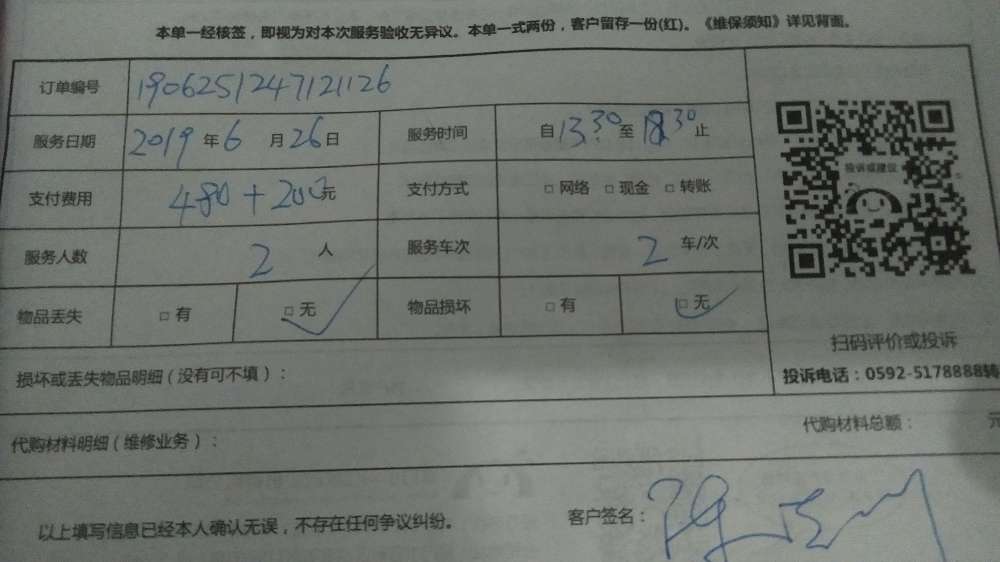 本单一经核签，即视为对本次服务验收无异议。本单一式两份，客户留存一份(红)。《维保须知》详见背面。
订单编号 1906251247121126
服务日期 2019年6月26日 服务时间 自13:30至18:30止
支付费用 480+200元 支付方式 □网络 □现金 □转账
投诉或建议
服务人数 2人 服务车次 2车/次
物品丢失 □有 □无 ✓ 物品损坏 □有 □无 ✓
扫码评价或投诉
损坏或丢失物品明细（没有可不填）：
投诉电话：0592-5178888转
代购材料明细（维修业务）： 代购材料总额： 元
以上填写信息已经本人确认无误，不存在任何争议纠纷。 客户签名：